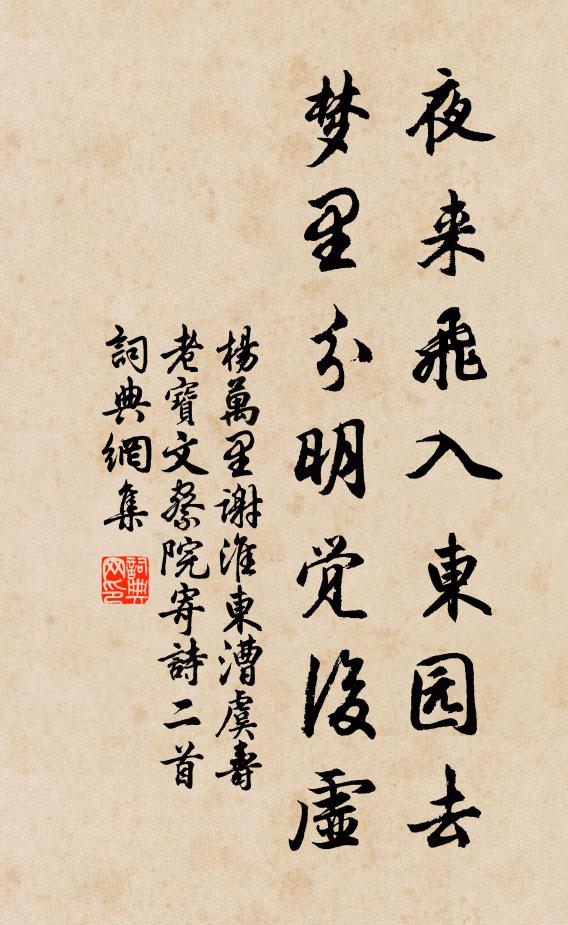 夜来飛入東园去
梦里分明覚後虛
楊萬里谢淮東漕虞壽
老寶文察院寄詩二首
詞典網集
詞典网印